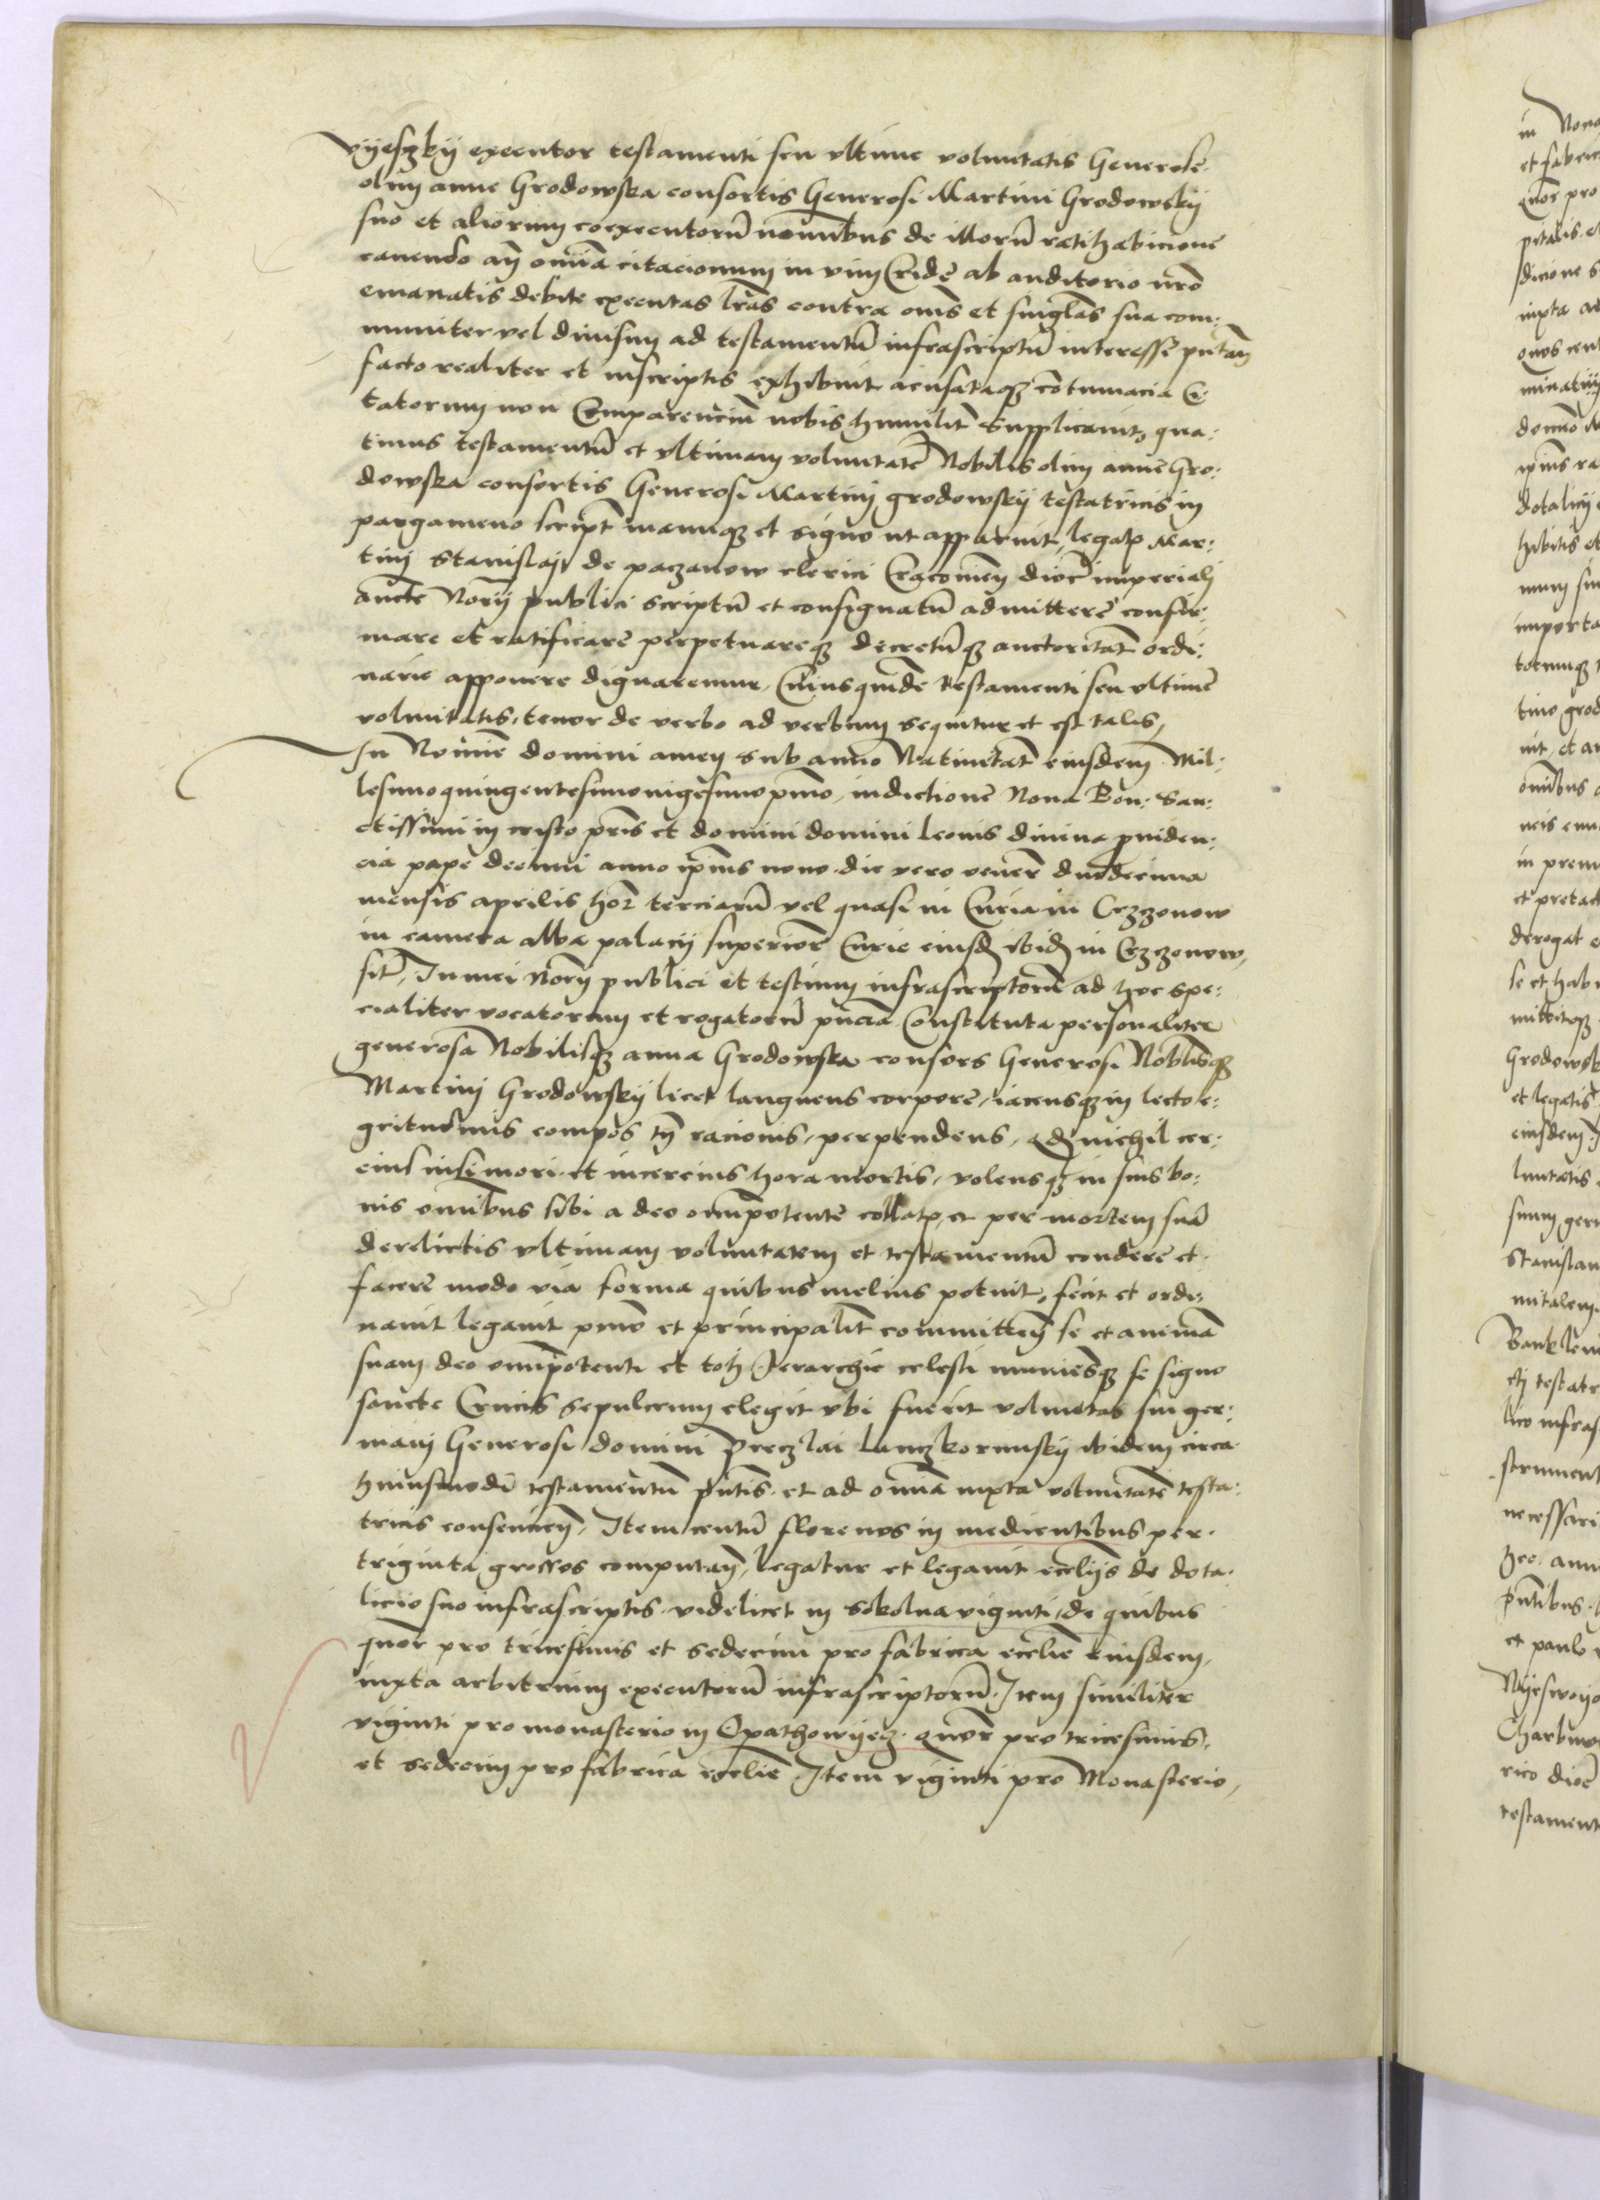 vyeszky executor testamenti seu vltime voluntatis Generose
olim anne Grodowska consortis Generosi Martini Grodowskij
suo et aliorum coexecutorū nominibus de illorū ratihabicione
cavendo an̄ omīa citacionum in vim Cride ab auditorio nrō
emanatis debite executas lrās contra om̄s et singlās sua com:
muniter vel divisim ad testamentū infrascriptū interesse putan̄
facto realiter et inscriptis exhibuit acusataqz cōtumacia Ci
tatorum non Comparenciū nobis humilit̄ Supplicavit, qua:
tinus testamentū et vltimam voluntatē Nobilis olim anne Gro:
dowska consortis Generosi Martini grodowskij testatricis in
pargameno script̄ manuqz et signo ut apparuit, legat͛ Mar:
tini Stanislaj de paczanow clerici Cracovien̄ dioc̄ imperiali
aucte Norij publici scriptū et consignatū admittere confir:
mare et ratificare perpetuareqz decretūqz auctoritat̄ ordi:
narie apponere dignaremur, Cuiusquidē testamenti seu vltime
voluntatis, tenor de verbo ad verbum sequitur et est talis,
In Nomine domini amen sub anno Nativitat̄ eiusdem Mil:
lesimoquingentesimovigesimoprimo, indictione Nona Pon: San:
ctissimi in cristo pr̄is et domini domini leonis divina p̄viden:
cia pape decimi anno ip̄ius nono die vero vener̄ duodecima
mensis aprilis hor̄ terciarū vel quasi in Curia in Czzonow
in camera alba palacij superiore Curie eiusd̄ ibid̄ in Czzonow,
sit̄, In mei Norij publici et testium infrascriptorū ad hoc spe:
cialiter vocatorum et rogatorū pn̄cia Constituta personaliter
generosa Nobilisqz anna Grodowska consors Generosi Nobilisqz
Martini Grodowskij licet languens corpore, iacensqz in lecto e:
gritudinis compos tn̄ racionis, perpendens, qd̄ nichil cer:
cius nisi mori et incercius hora mortis, volensqz in suis bo:
nis omībus sibi a deo omp̄otente collat͛ et per mortem suā
derelictis vltimam voluntatem et testamentū condere et
facere modo via forma quibus melius potuit, fecit et ordi:
navit legavit pmō et principalit̄ committen̄ se et animā
suam deo omip̄otenti et toti Jerarchie celesti muniensqz se signo
sancte Crucis sepulcrum elegit vbi fuerit voluntas sui ger:
mani Generosi domini Preczlai Lanczkorunskij ibidem circa
huiusmodi testamentū pn̄tis et ad omīa iuxta voluntatē testa:
tricis consencien̄, Item centū florenos in medientibus per
triginta grossos computan̄, legatur et legavit eccliis de dota:
licio suo infrascriptis videlicet in Sokolna viginti, de quibus
quor̄ pro tricesimis et sedecim pro fabrica ecclie eiusdem,
iuxta arbitrium executorū infrascriptorū, Item similiter
viginti pro monasterio in Opathowyecz quor̄ pro tricesimis,
et sedecim pro fabrica ecclie Item viginti pro Monasterio,